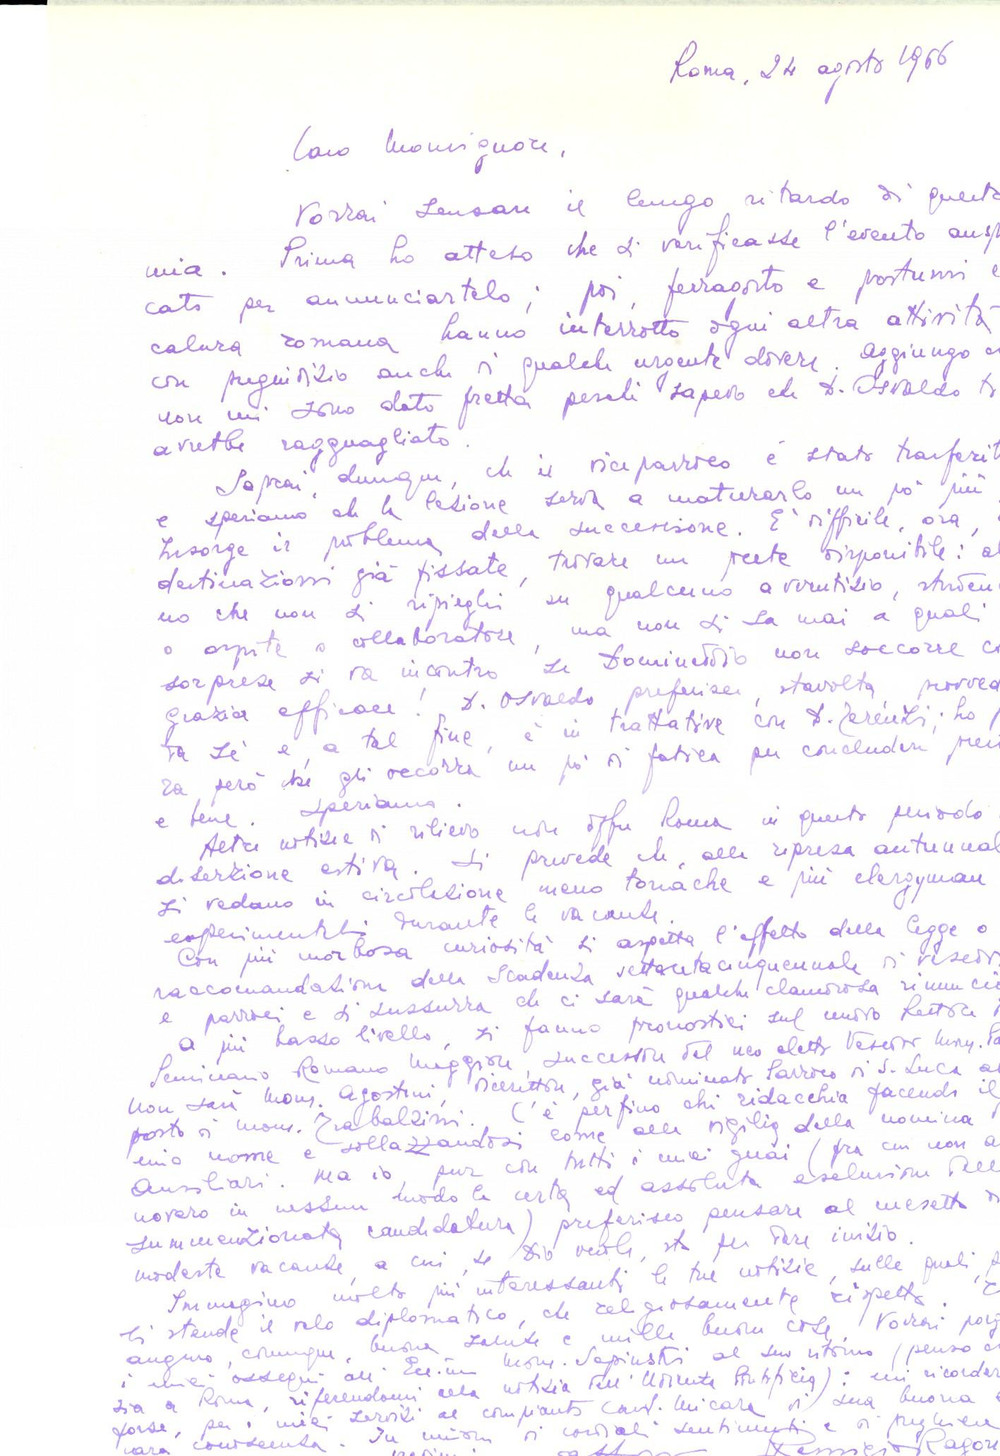 Roma, 24 agosto 1966
Caro Monsignore,
Vorrai scusare il lungo ritardo di questa
mia. Prima ho atteso che si verificasse l'evento ausp
cato per annunciartelo; poi, ferragosto e postumi e
calura romana hanno interrotto ogni altra attività
con pregiudizio anche di qualche urgente dovere. Aggiungo ch
non mi sono dato fretta perché sapevo che D. Osvaldo ti
avrebbe ragguagliato.
Saprai, dunque, che il viceparroco è stato trasferit
e speriamo che la lezione serva a maturarlo un pò più
Insorge il problema della successione. È difficile, ora,
destinazioni già fissate, trovare un prete disponibile: a
no che non si ripieghi su qualcuno avventizio, studen
o ospite o collaboratore, ma non si sa mai a quali
sorprese si va incontro se Domineddio non soccorre co
grazia efficace! D. Osvaldo preferisce, stavolta, provved
da sé e, a tal fine, è in trattative con D. Terenzi; ho p
ra però che gli occorra un pò di fatica per concludere pre
e bene. Speriamo.
Altre notizie di rilievo non offre Roma in questo periodo
diserzione estiva. Si prevede che, alla ripresa autunnal
si vedano in circolazione meno tonache e più clergyman
esperimentati durante le vacanze.
Con più morbosa curiosità si aspetta l'effetto della legge o
raccomandazione della scadenza settantacinquennale di vescov
e parroci e si sussurra che ci sarà qualche clamorosa rinuncia
A più basso livello, si fanno pronostici sul nuovo Rettore
Seminario Romano Maggiore, successore del neo eletto Vescovo Mons. Pa
Non sarà Mons. Agostini, Vicerettore, già nominato Parroco di S. Luca al
posto di Mons. Trabalzini. C'è perfino chi ridacchia facendo il
mio nome e sollazzandosi come alla vigilia della nomina
Ausiliari. Ma io, pur con tutti i miei guai (fra cui non a
novero in nessun modo la certa ed assoluta esclusione dall
summenzionata candidatura) preferisco pensare al mesetto di
modeste vacanze, a cui, se Dio vuole, sto per dare inizio.
Immagino molto più interessanti le tue notizie, sulle quali, p
si stende il velo diplomatico, che religiosamente rispetto.
auguro, comunque, buona salute e mille buone cose. Vorrai porg
i miei ossequi all'Ecc.mo Mons. Sapinski al suo ritorno (penso ch
sia a Roma, riferendomi alla notizia dell'Udienza Pontificia): mi ricorder
forse, per i miei servizi al compianto Card. Micara di sua buona
In unione di cordiali sentimenti e di preghiera